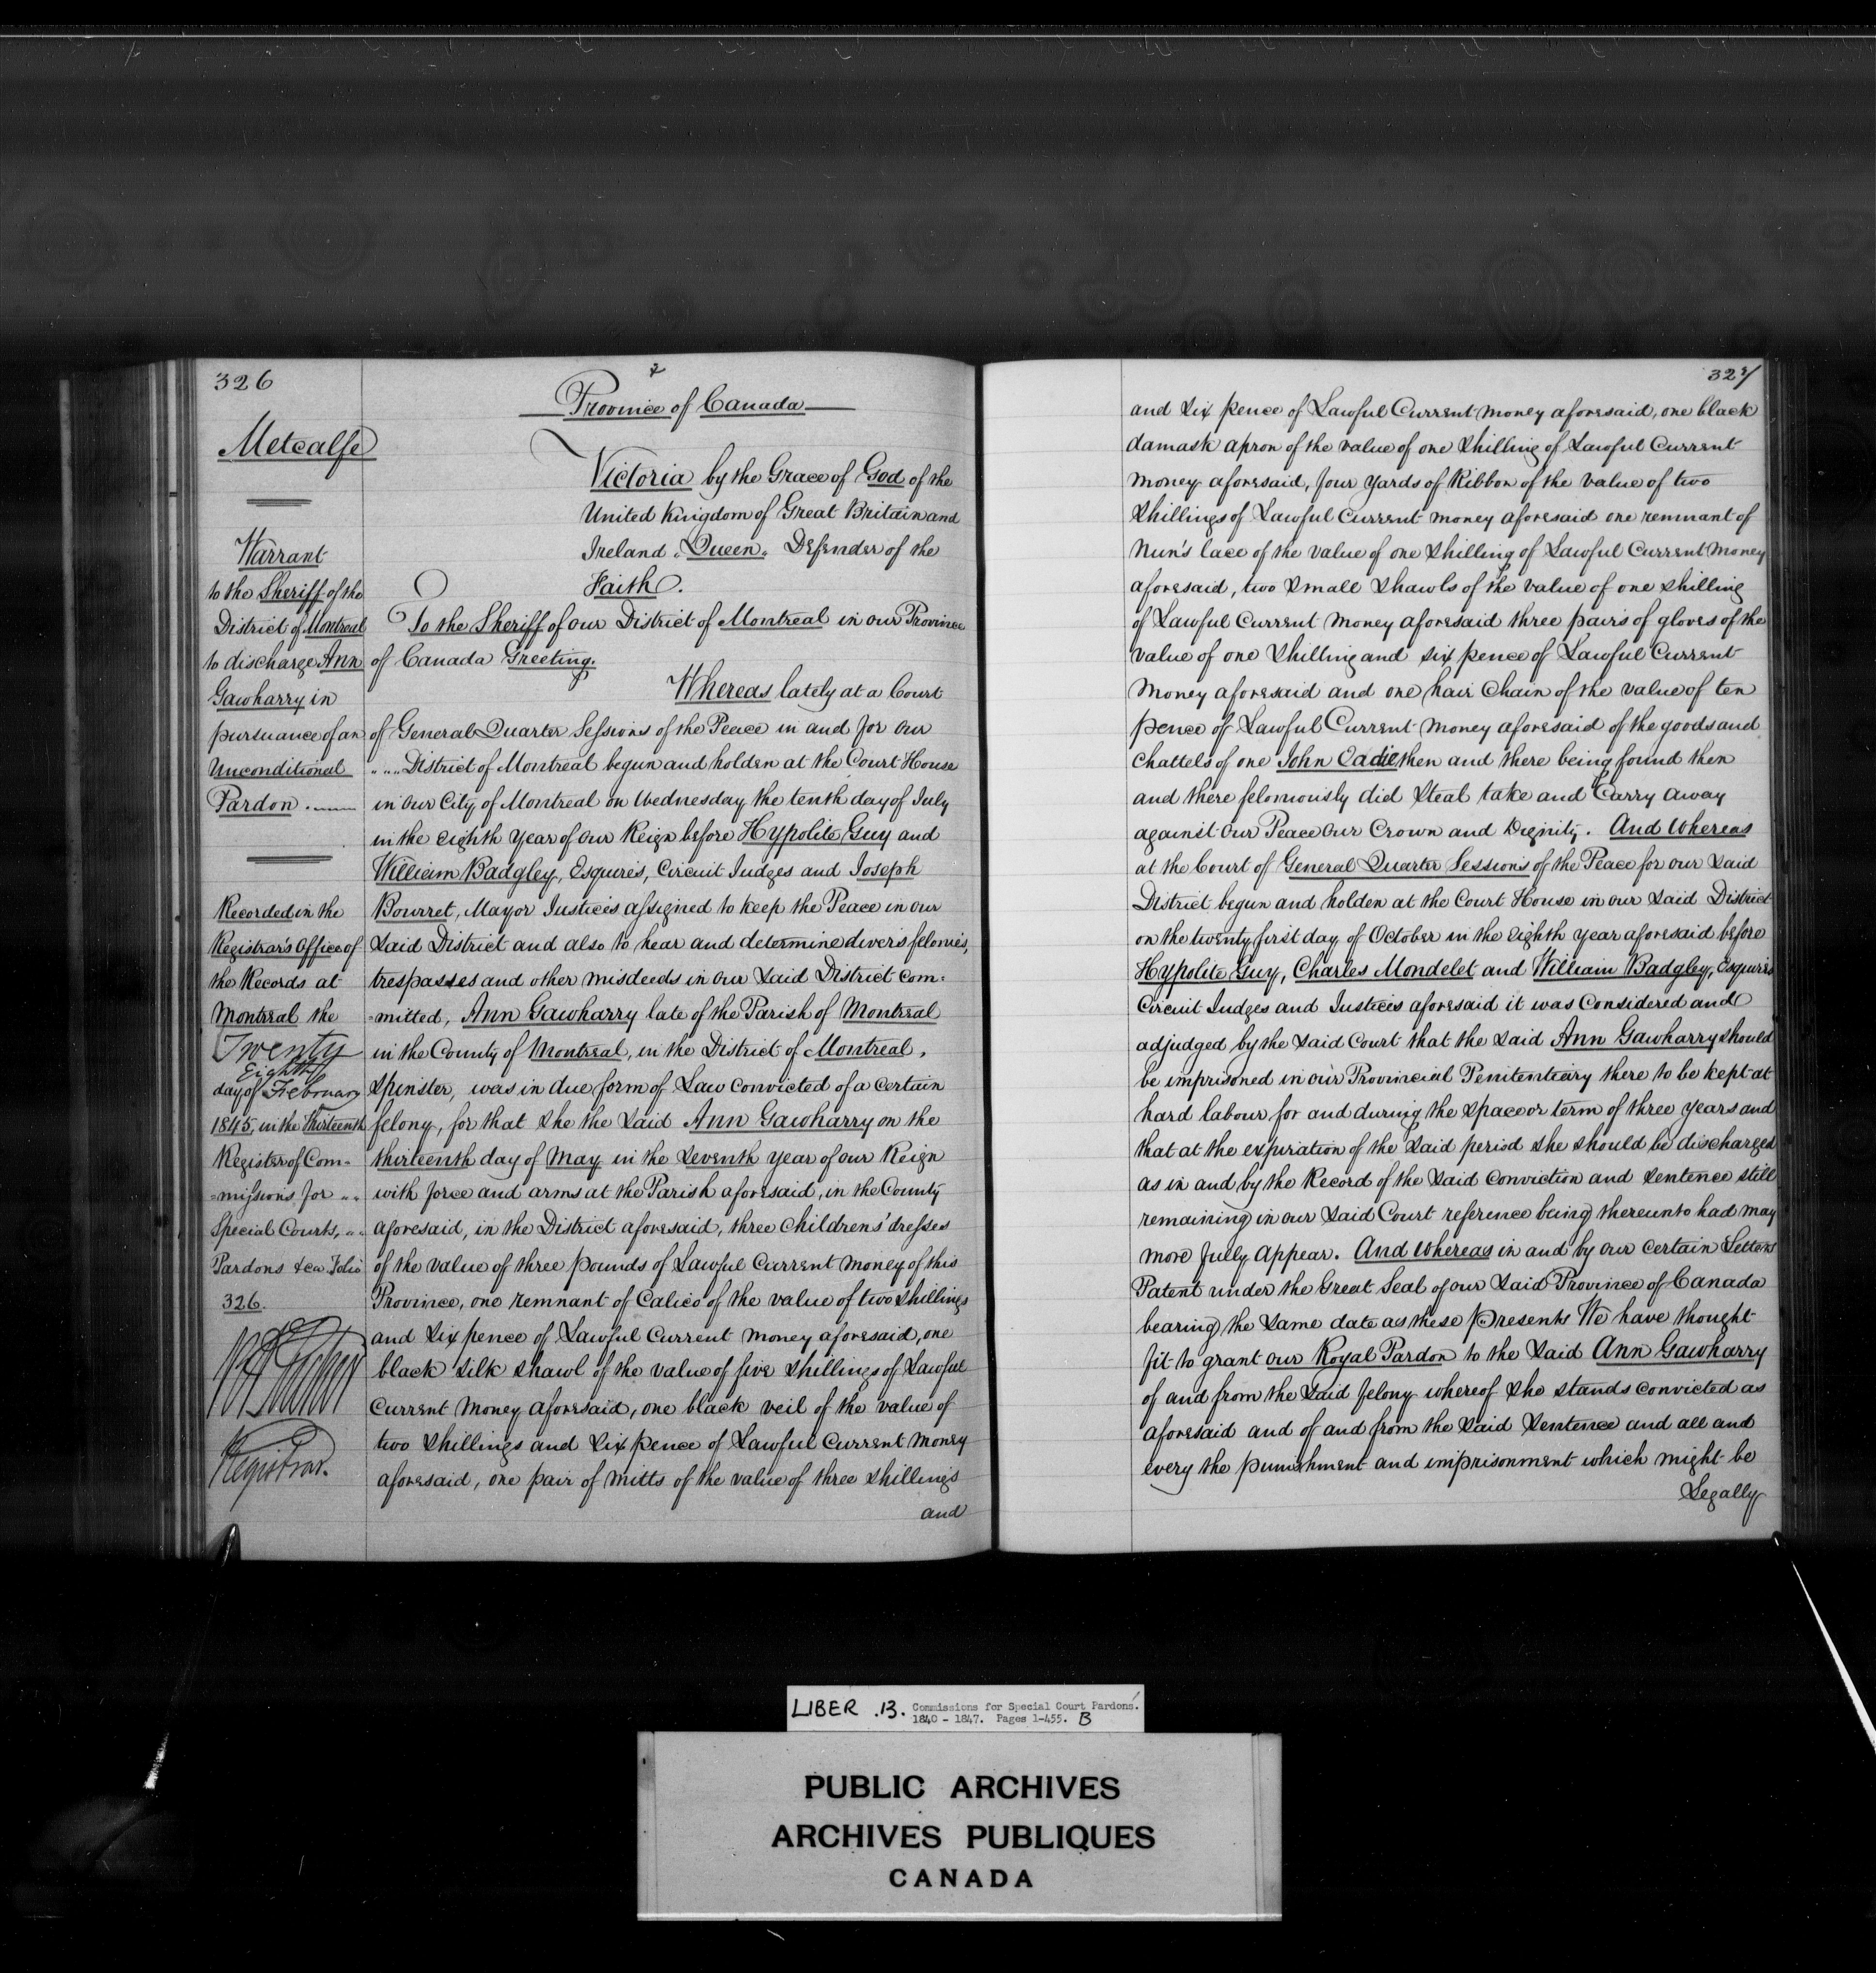 326
Metcalfe
Warrant
to the Sheriff of the
District of Montreal
to discharge Ann
Gawharry in
pursuance of an
Unconditional
Pardon.
Recorded in the
Registrar's Office of
the Records at
Montreal the
Twenty
Eighth
day of February
1845, in the Thirteenth
Register of Com-
=missions for
Special Courts,
Pardons &ca Folio
326.
Registrar.
Province of Canada
Victoria by the Grace of God of the
United Kingdom of Great Britain and
Ireland „Queen„ Defender of the
Faith.
To the Sheriff of our District of Montreal in our Province
of Canada Greeting.
Whereas lately at a Court
of General Quarter Sessions of the Peace in and for our
District of Montreal begun and holden at the Court House
in our City of Montreal on Wednesday the tenth day of July
in the eighth year of our Reign before Hypolite Guy and
William Badgley, Esquires, Circuit Judges and Joseph
Bourret, Mayor Justices assigned to keep the Peace in our
said District and also to hear and determine divers felonies,
trespasses and other misdeeds in our said District com=
=mitted, Ann Gawharry late of the Parish of Montreal
in the County of Montreal, in the District of Montreal,
spinster, was in due form of Law convicted of a certain
felony, for that she the said Ann Gawharry on the
thirteenth day of May in the seventh year of our Reign
with force and arms at the Parish aforesaid, in the County
aforesaid, in the District aforesaid, three Childrens' dresses
of the value of three pounds of Lawful Current Money of this
Province, one remnant of Calico of the value of two shillings
and six pence of Lawful Current Money aforesaid, one
black silk shawl of the value of five shillings of Lawful
Current Money aforesaid, one black veil of the value of
two shillings and six pence of Lawful Current Money
aforesaid, one pair of mitts of the value of three shillings
and
327
and six pence of Lawful Current Money aforesaid, one black
damask apron of the value of one shilling of Lawful Current
Money aforesaid, four yards of Ribbon of the value of two
shillings of Lawful Current Money aforesaid one remnant of
Nun's lace of the value of one shilling of Lawful Current Money
aforesaid, two small shawls of the value of one shilling
of Lawful Current Money aforesaid three pairs of gloves of the
value of one shilling and six pence of Lawful Current
Money aforesaid and one hair Chain of the value of ten
pence of Lawful Current Money aforesaid of the goods and
Chattels of one John Eadie then and there being found then
and there feloniously did steal take and Carry away
against our Peace our Crown and Dignity. And Whereas
at the Court of General Quarter Sessions of the Peace for our said
District begun and holden at the Court House in our said District
on the twenty first day of October in the eighth year aforesaid before
Hypolite Guy, Charles Mondelet and William Badgley, Esquires
Circuit Judges and Justices aforesaid it was Considered and
adjudged by the said Court that the said Ann Gawharry should
be imprisoned in our Provincial Penitentiary there to be kept at
hard labour for and during the space or term of three years and
that at the expiration of the said period she should be discharged
as in and by the Record of the said Conviction and sentence still
remaining in our said Court reference being thereunto had may
more fully appear. And Whereas in and by our certain Letters
Patent under the Great Seal of our said Province of Canada
bearing the same date as these presents We have thought
fit to grant our Royal Pardon to the said Ann Gawharry
of and from the said felony whereof she stands convicted as
aforesaid and of and from the said sentence and all and
every the punishment and imprisonment which might be
Legally
LIBER .13. Commissions for Special Court Pardons.
1840 - 1847. Pages 1-455. B
PUBLIC ARCHIVES
ARCHIVES PUBLIQUES
CANADA